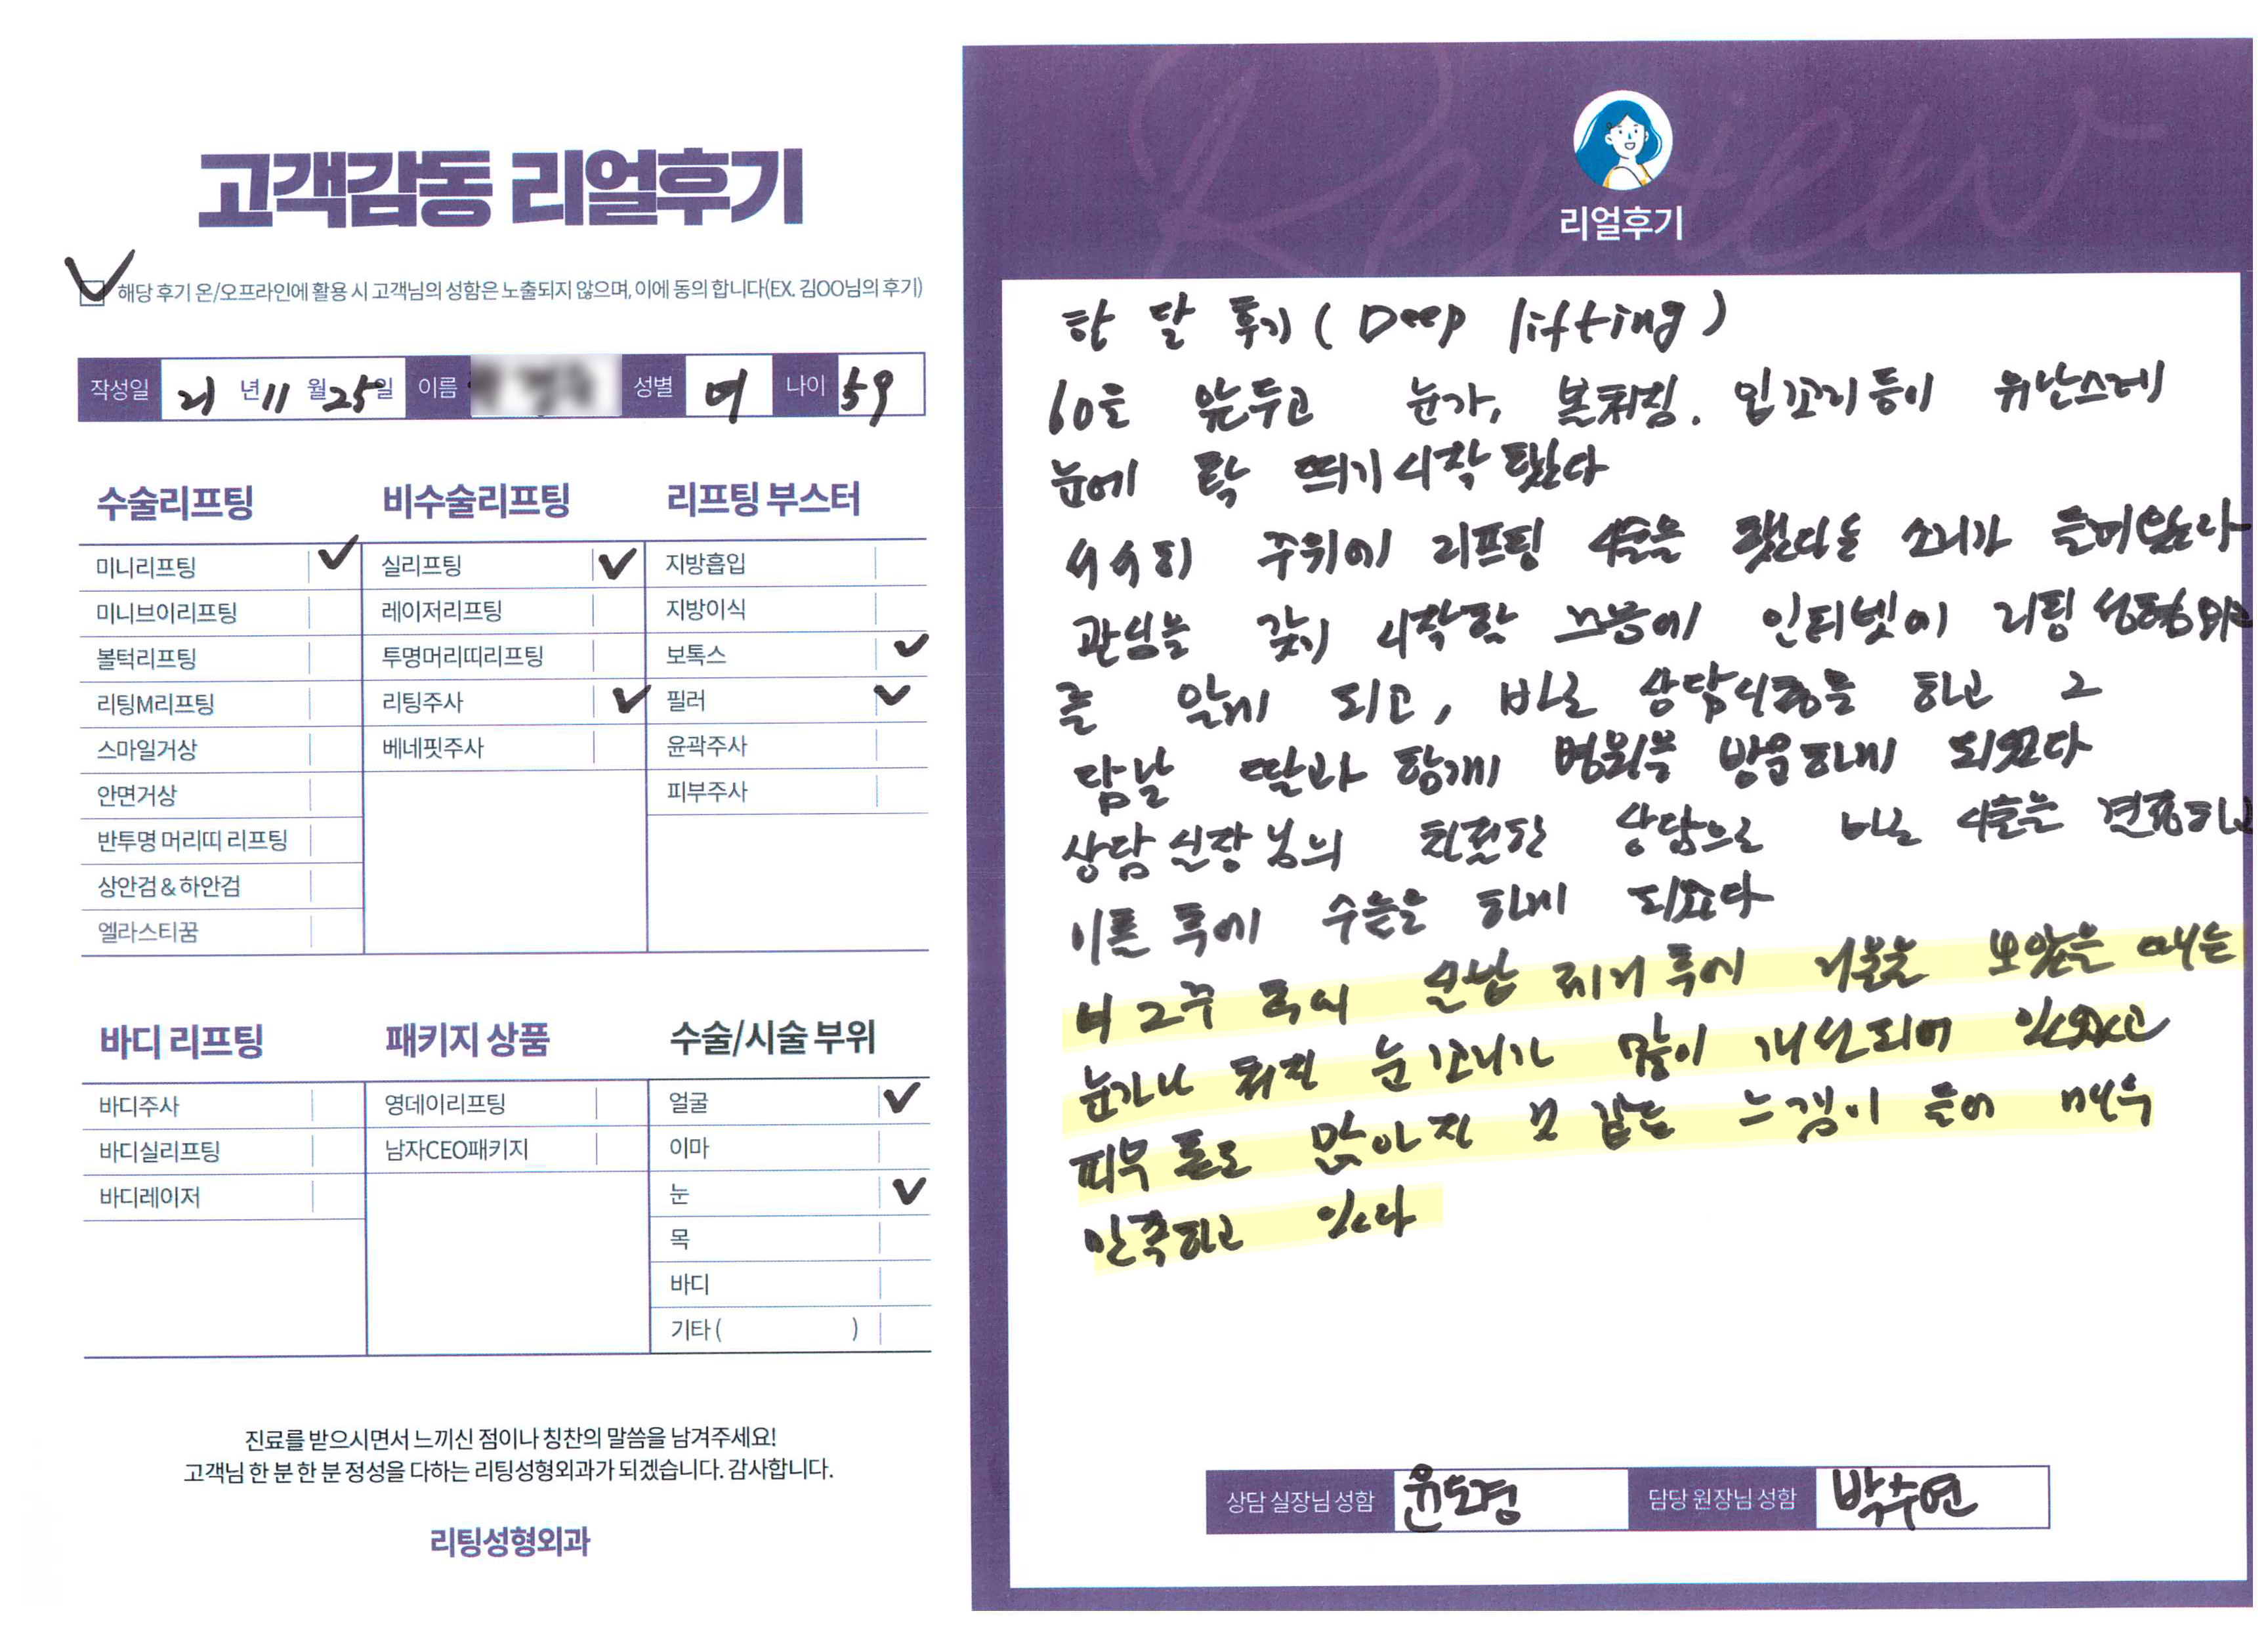 고객감동 리얼후기
해당 후기 온/오프라인에 활용 시 고객님의 성함은 노출되지 않으며, 이에 동의 합니다(EX. 김OO님의 후기)
작성일 21 년 11 월 25일 이름 성별 여 나이 59
수술리프팅
미니리프팅
미니브이리프팅
볼턱리프팅
리팅M리프팅
스마일거상
안면거상
반투명 머리띠 리프팅
상안검 & 하안검
엘라스티꿈
비수술리프팅
실리프팅
레이저리프팅
투명머리띠리프팅
리팅주사
베네핏주사
리프팅 부스터
지방흡입
지방이식
보톡스
필러
윤곽주사
피부주사
바디 리프팅
바디주사
바디실리프팅
바디레이저
패키지 상품
영데이리프팅
남자CEO패키지
수술/시술 부위
얼굴
이마
눈
목
바디
기타 ( )
진료를 받으시면서 느끼신 점이나 칭찬의 말씀을 남겨주세요!
고객님 한 분 한 분 정성을 다하는 리팅성형외과가 되겠습니다. 감사합니다.
리팅성형외과
Review
리얼후기
한 달 후기 ( Deep lifting )
60을 앞두고 눈가, 볼처짐. 입꼬리 등이 유난스레
눈에 확 띄기 시작 했다
서서히 주위에 리프팅 시술을 했다는 소리가 들려왔다
관심을 갖기 시작할 즈음에 인터넷에 리팅 성형외과
를 알게 되고, 바로 상담신청을 하고 그
담날 딸과 함께 병원을 방문하게 되었다
상담 실장님의 친절한 상담으로 바로 시술을 결정하고
이튿 후에 수술을 하게 되었다
너 2주 실밥 제거 후에 거울을 보았을 때는
눈가나 처진 눈꼬리가 많이 개선되어 있었고
피부 톤도 맑아진 것 같은 느낌이 들어 매우
만족하고 있다
상담 실장님 성함 윤도경 담당 원장님 성함 박수연